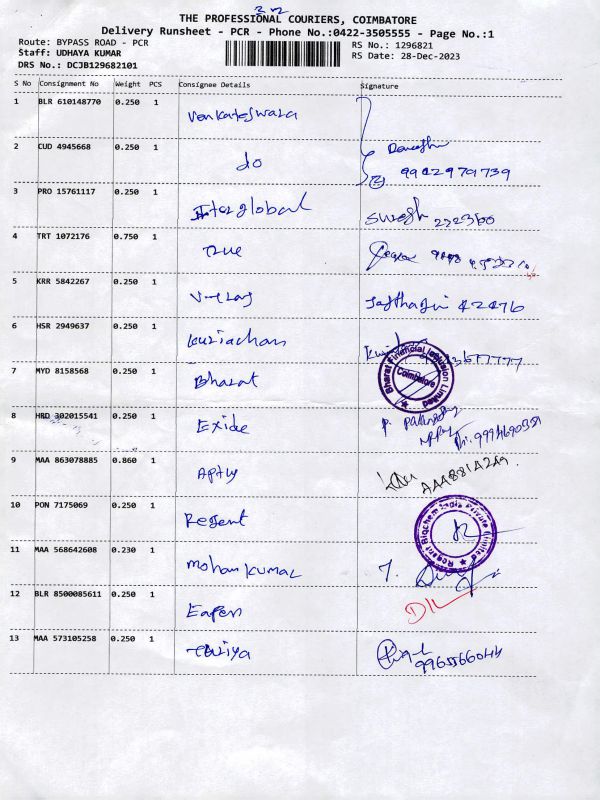 THE PROFESSIONAL COURIERS, COIMBATORE
Delivery Runsheet - PCR - Phone No.:0422-3505555 - Page No.:1
Route: BYPASS ROAD - PCR
Staff: UDHAYA KUMAR
DRS No.: DCJB129682101
RS No.: 1296821
RS Date: 28-Dec-2023
S No Consignment No Weight PCS Consignee Details Signature
1 BLR 610148770 0.250 1 Venkateswara
2 CUD 4945668 0.250 1 do
3 PRO 15761117 0.250 1 Interglobal Suresh
4 TRT 1072176 0.750 1 True
5 KRR 5842267 0.250 1
6 HSR 2949637 0.250 1 Kuriachan
7 MYD 8158568 0.250 1 Bharat Bharat Financial Inclusion Limited Coimbatore
8 HRD 302015541 0.250 1 Exide
9 MAA 863078885 0.860 1 Aptly
10 PON 7175069 0.250 1 Regent Regent Biochem India Private Limited
11 MAA 568642608 0.230 1 Mohan Kumar
12 BLR 8500085611 0.250 1 Eapen
13 MAA 573105258 0.250 1 9965566044